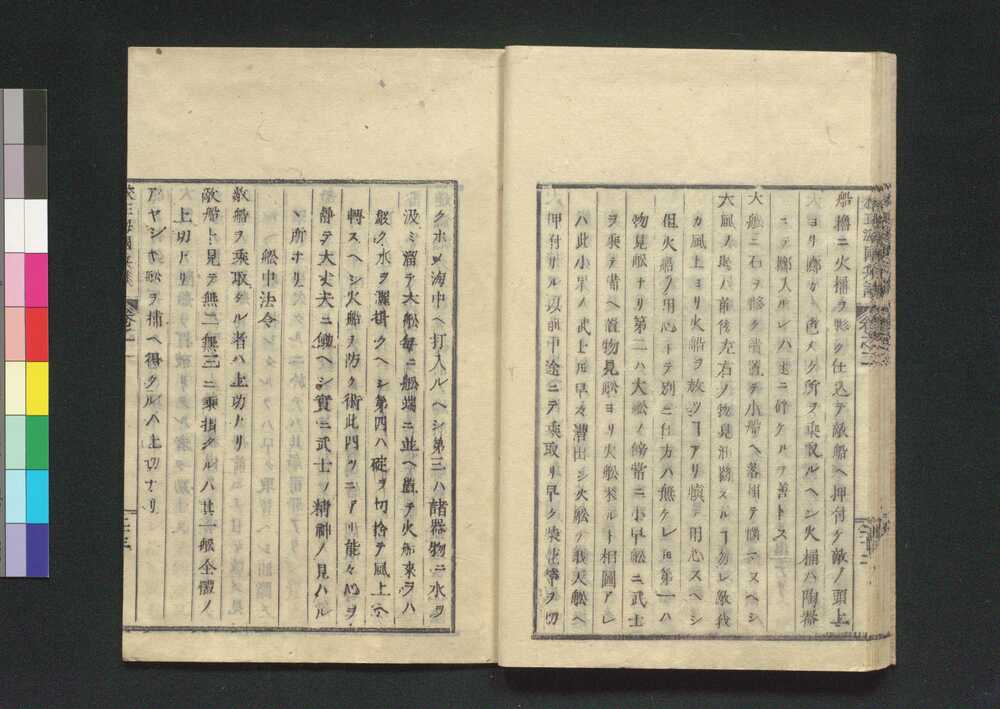 船櫓ニ火桶ヲ夥ク仕込テ敵船ヘ押付ケ敵ノ頭上
ヨリ擲カケ色メク所ヲ乗取ルヘシ火桶ハ陶器
ニテ擲入ルレハ速ニ砕ケルヲ善トス
大船ニ石ヲ夥ク積置テ小船ヘ落掛テ悩マスヘシ
大風ノ時ハ前後左右ノ物見油断スルヿ勿レ敵我
カ風上ヨリ火船ヲ放ツヿアリ慎テ用心スヘシ
但火船ノ用心トテ別ニ仕方ハ無ケレ𪜈第一ハ
物見船ナリ第二ハ大船ノ傍常ニ小早船ニ武士
ヲ乗テ備ヘ置物見船ヨリ火船来ルト相圖アレ
ハ此小早ノ武士𪜈早々漕出シ火船ノ我大船ヘ
押付サル以前中途ニテ乗取リ早ク柴花等ヲ切
クホメ海中ヘ打入ルヘシ第三ハ諸器物ニ水ヲ
汲ミ溜テ大船毎ニ船端ニ並ヘ置テ火船来ラハ
夥ク水ヲ灑掛クヘシ第四ハ碇ヲ切捨テ風上ヘ
轉スヘシ火船ヲ防ク術此四ツニアリ能々心ヲ
静テ大丈夫ニ働ヘシ實ニ武士ノ精神ノ見ハル
ゝ所ナリ
船中法令
敵船ヲ乗取タル者ハ上功ナリ
敵船ト見テ無二無三ニ乗掛タルハ其一船全體ノ
上切ナリ
アヤシキ船ヲ捕ヘ得タルハ上切ナリ